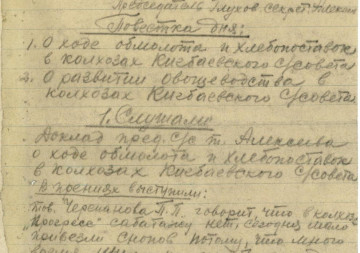 Председатель Глухов секрет. Алексеев
Повестка дня:
1. О ходе обмолота и хлебопоставок
в колхозах Кигбаевского с/совета
2. О развитии овощеводства в
колхозах Кигбаевского с/совета
1. Слушали
Доклад пред. с/с т. Алексеева
о ходе обмолота и хлебопоставок
в колхозах Кигбаевского с/совета
В прениях выступили:
тов. Черепанова П.П. говорит, что в колхозе
"Прогресс" саботажу нет, сегодня мало
привезли снопов потому, что много